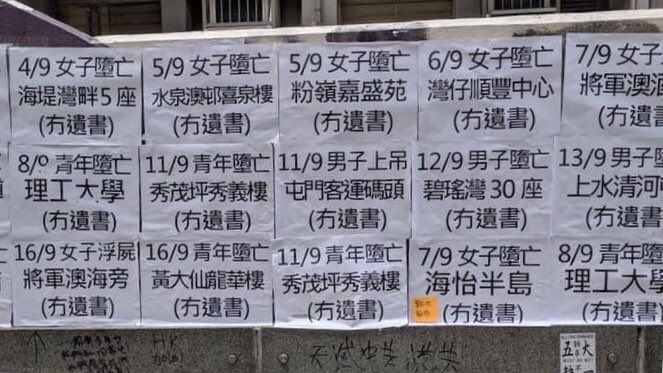 4/9 女子墮亡
海堤灣畔5座
(冇遺書)
5/9 女子墮亡
水泉澳邨喜泉樓
(冇遺書)
5/9 女子墮亡
粉嶺嘉盛苑
(冇遺書)
6/9 女子墮亡
灣仔順豐中心
(冇遺書)
7/9 女子
將軍澳
(冇遺書
8/9 青年墮亡
理工大學
(冇遺書)
11/9 青年墮亡
秀茂坪秀義樓
(冇遺書)
11/9 男子上吊
屯門客運碼頭
(冇遺書)
12/9 男子墮亡
碧瑤灣30座
(冇遺書)
13/9 男子
上水清河
(冇遺書
16/9 女子浮屍
將軍澳海旁
(冇遺書)
16/9 青年墮亡
黃大仙龍華樓
(冇遺書)
11/9 青年墮亡
秀茂坪秀義樓
(冇遺書)
7/9 女子墮亡
海怡半島
(冇遺書)
8/9 青年墮
理工大學
(冇遺書)
HK
天滅中共
五大